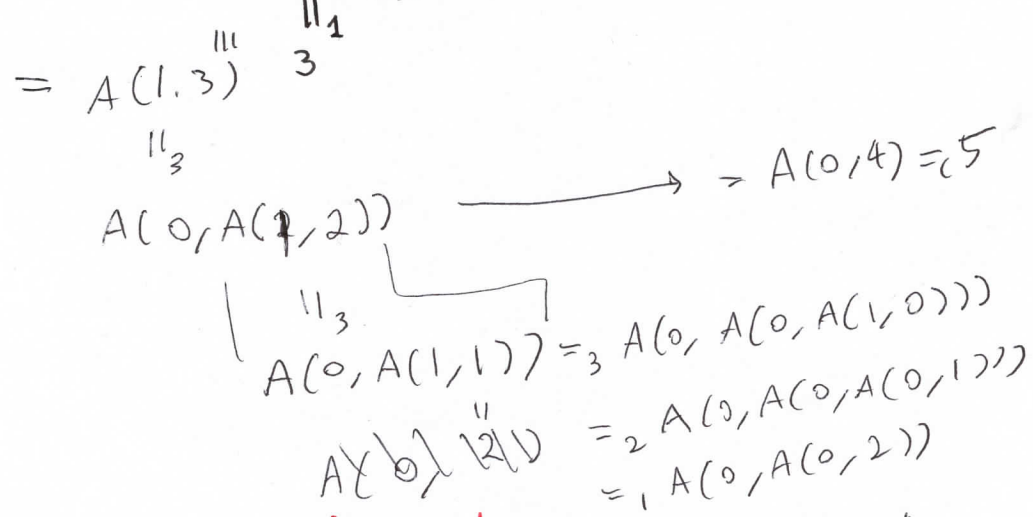 ||₁
||| 3
= A(1.3)
||₃
A(0,A(1,2)) → = A(0,4) = 5
||₃
A(0,A(1,1)) =₃ A(0, A(0,A(1,0)))
||
=₂ A(0,A(0,A(0,1)))
=₁ A(0,A(0,2))